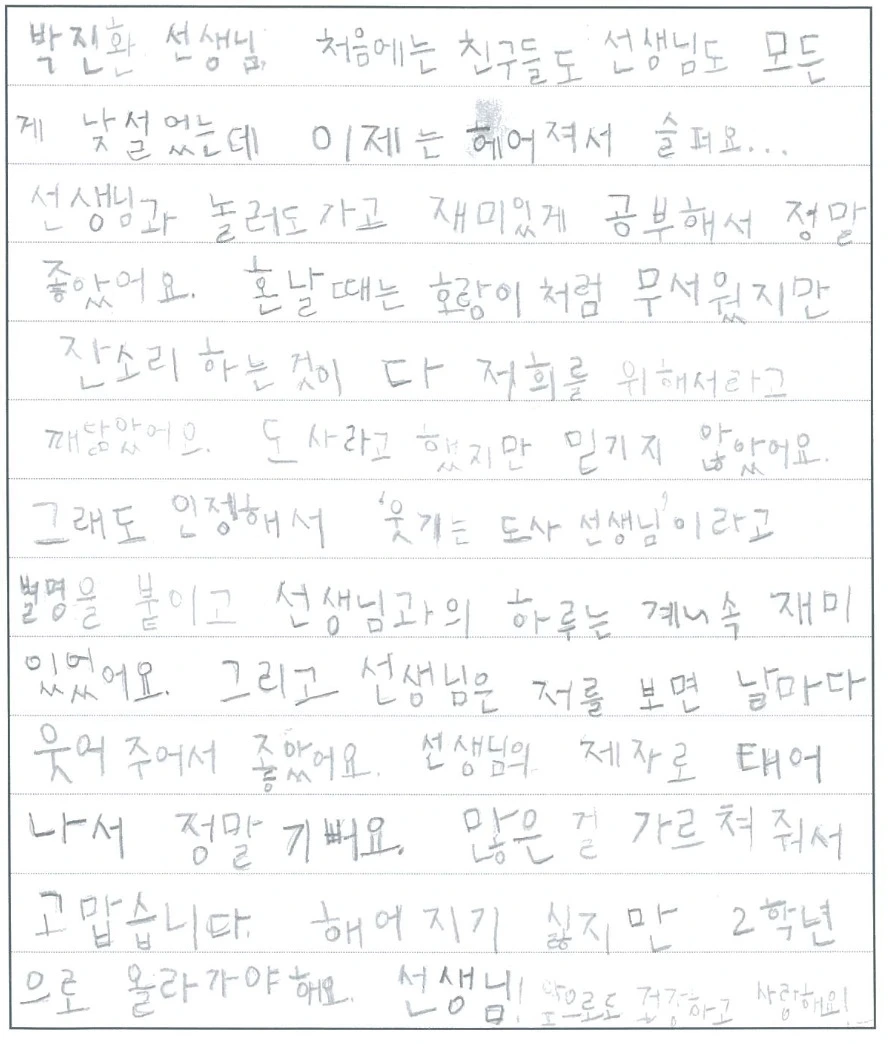 박진환 선생님, 처음에는 친구들도 선생님도 모든
게 낯설었는데 이제는 헤어져서 슬퍼요...
선생님과 놀러도 가고 재미있게 공부해서 정말
좋았어요. 혼날 때는 호랑이처럼 무서웠지만
잔소리 하는 것이 다 저희를 위해서라고
깨닮았어요. 도사라고 했지만 믿기지 않았어요.
그래도 인정해서 '웃기는 도사 선생님'이라고
별명을 붙이고 선생님과의 하루는 계속 재미
있었어요. 그리고 선생님은 저를 보면 날마다
웃어 주어서 좋았어요. 선생님의 제자로 태어
나서 정말 기뻐요. 많은 걸 가르쳐 줘서
고맙습니다. 헤어지기 싫지만 2학년
으로 올라가야 해요. 선생님! 앞으로도 건강하고 사랑해요!